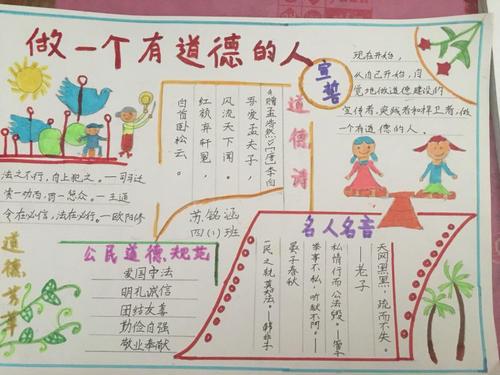 做一个有道德的人
宣誓
现在开始，
从自己开始，自
觉地做道德建设的
宣传者，实践者和捍卫者，做
一个有道德的人。
道德诗
《赠孟浩然》[唐]李白
吾爱孟夫子，
风流天下闻。
红颜弃轩冕，
白首卧松云。
法之不行，自上犯之。—司马迁
赏一功而，罚一恶众。—王通
令在必信，法在必行。—欧阳修
苏铭涵
四(1)班
道德芳草
公民道德规范
爱国守法
明礼诚信
团结友善
勤俭自强
敬业奉献
名人名言
天网恢恢，疏而不失。
——老子
私情行而公法毁。——管子
举事不私，听狱不阿。——
晏子春秋
一民之轨莫法。——韩非子